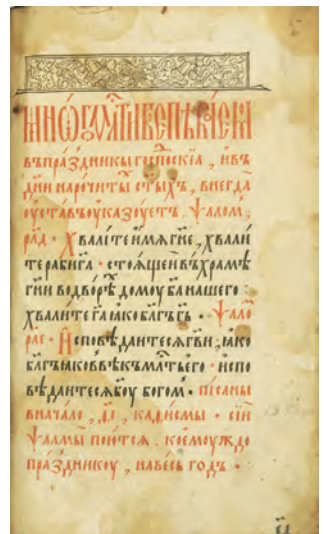 въпра́здникы гпⷭ҇о́скїѧ , и҆въ
дн҃и нарочи́ты ст҃ы́хъ , внегда̀
оу҆ста́въ оу҆казоуетъ . ѱало́м ,
рл҃д · Хвали́те и҆мѧ гн҃е , хвали́
те раби га҃ · стоѧ́щеи въхра́мѣ
гн҃и во дворѣ̀ домоу б҃а нашего :
хвали́те га҃ ꙗко бл҃гъ гь҃ · ѱало
рл҃е · И҆сповѣ́даитесѧ гв҃и , ꙗко
бл҃гъ ꙗко ввѣ́къ мл҃тьего · испо
вѣ́даитесѧ б҃оу богом · пи́саны
вначало , кади́смы · сїи
ѱалмы̀ пою́тсѧ . коемоуждо
пра́здникоу , навесь годъ ·